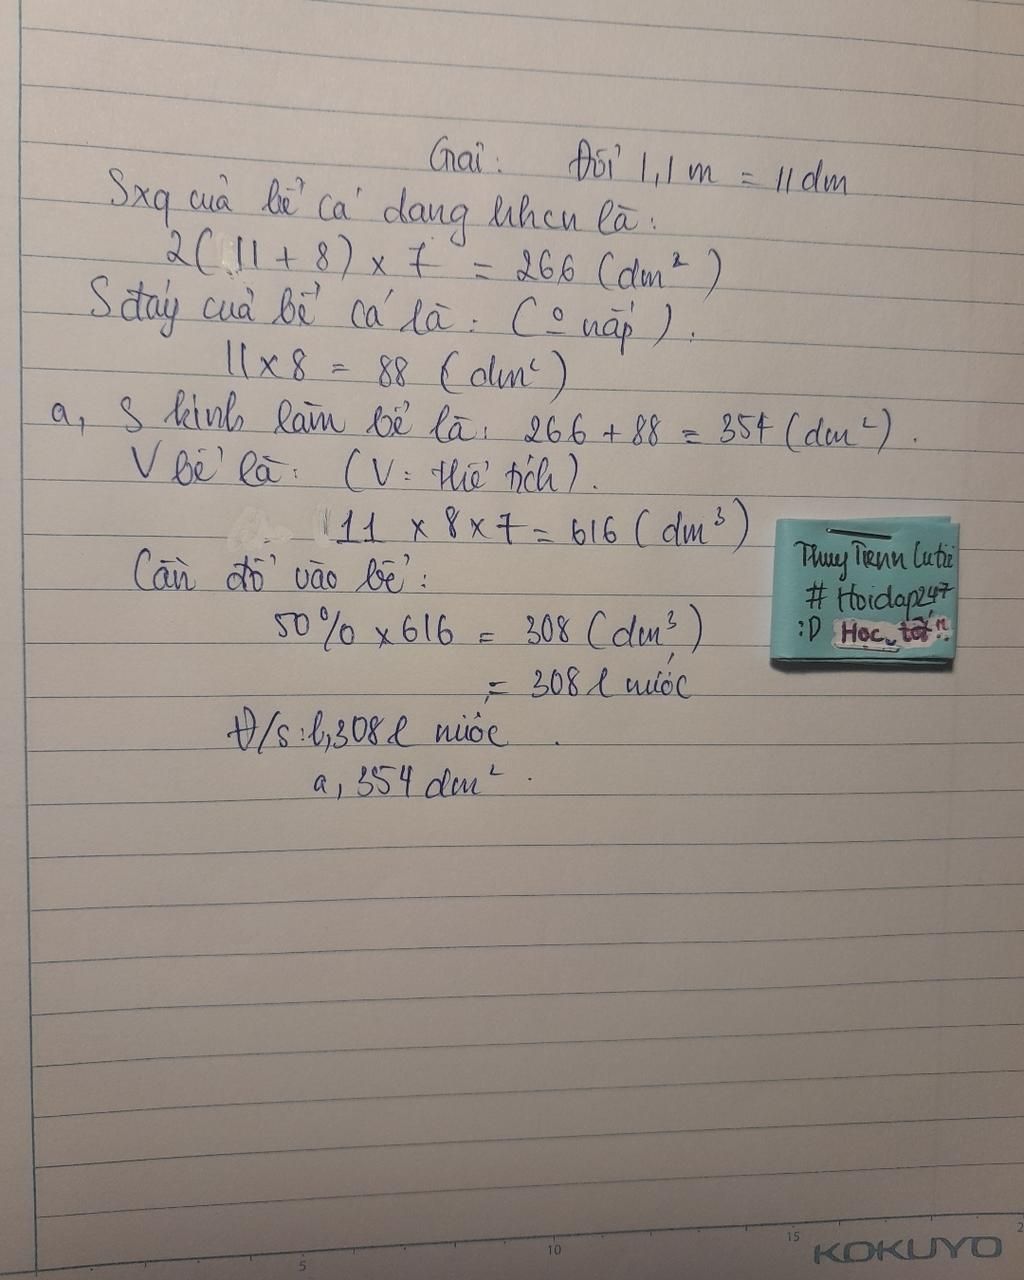 Giải: Đổi 1,1 m = 11 dm
Sxq của bể cá dạng hhcn là:
2( 11 + 8) x 7 = 266 (dm²)
S đáy của bể cá là: (0 nắp).
11 x 8 = 88 (dm²)
a, S kính làm bể là: 266 + 88 = 354 (dm²).
V bể là: (V: thể tích).
11 x 8 x 7 = 616 (dm³)
Cần đổ vào bể:
50% x 616 = 308 (dm³)
= 308 l nước
Đ/s: b, 308 l nước.
a, 354 dm².
Thuy Tienn Cutie
# Hoidap247
:D Học tốt !!
5
10
15
2
KOKUYO